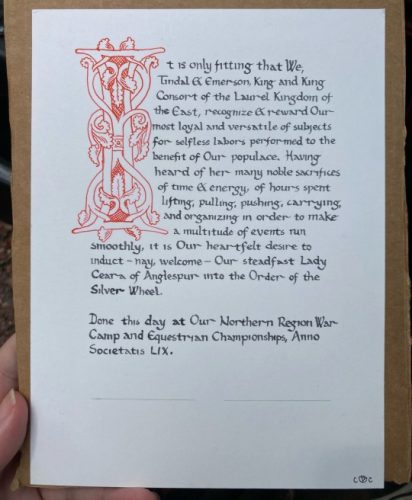 It is only fitting that We,
Tindal & Emerson, King and King
Consort of the Laurel Kingdom of
the East, recognize & reward Our
most loyal and versatile of subjects
for selfless labors performed to the
benefit of Our populace. Having
heard of her many noble sacrifices
of time & energy, of hours spent
lifting, pulling, pushing, carrying,
and organizing in order to make
a multitude of events run
smoothly, it is Our heartfelt desire to
induct - nay, welcome - Our steadfast Lady
Ceara of Anglespur into the Order of the
Silver Wheel.
Done this day at Our Northern Region War
Camp and Equestrian Championships, Anno
Societatis LIX.